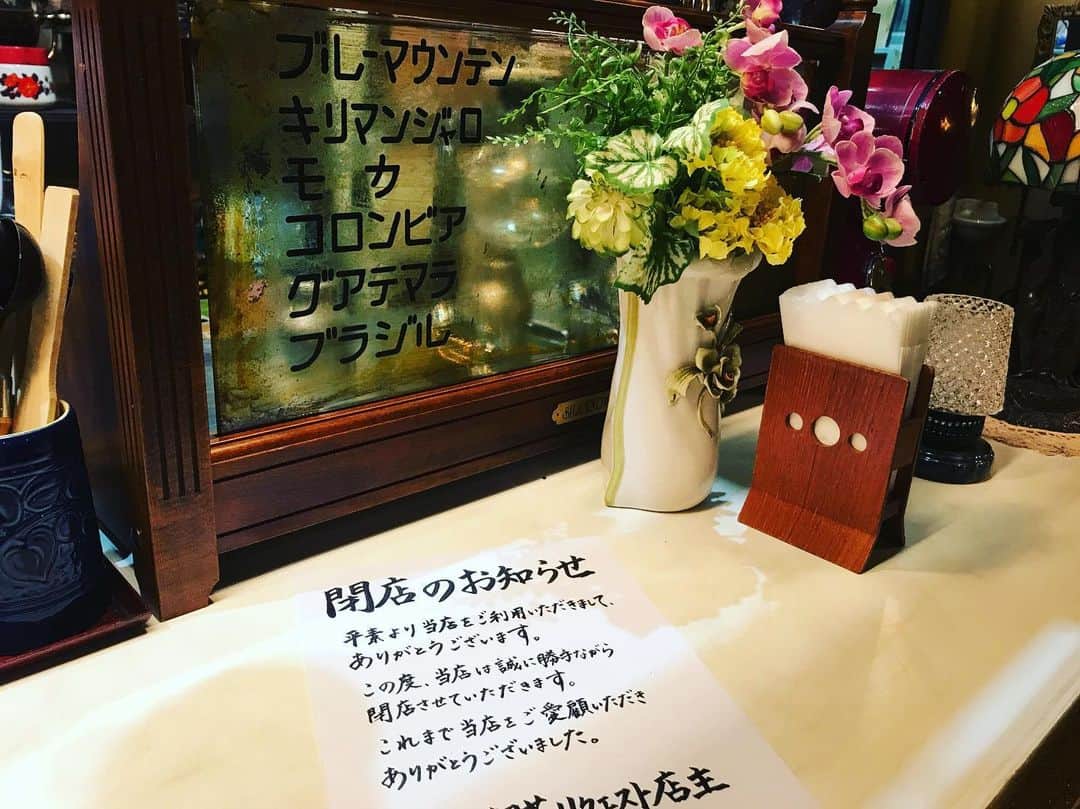 ブルーマウンテン
キリマンジャロ
モカ
コロンビア
グアテマラ
ブラジル
閉店のお知らせ
平素より当店をご利用いただきまして、
ありがとうございます。
この度、当店は誠に勝手ながら
閉店させていただきます。
これまで当店をご愛顧いただき
ありがとうございました。
リクエスト店主